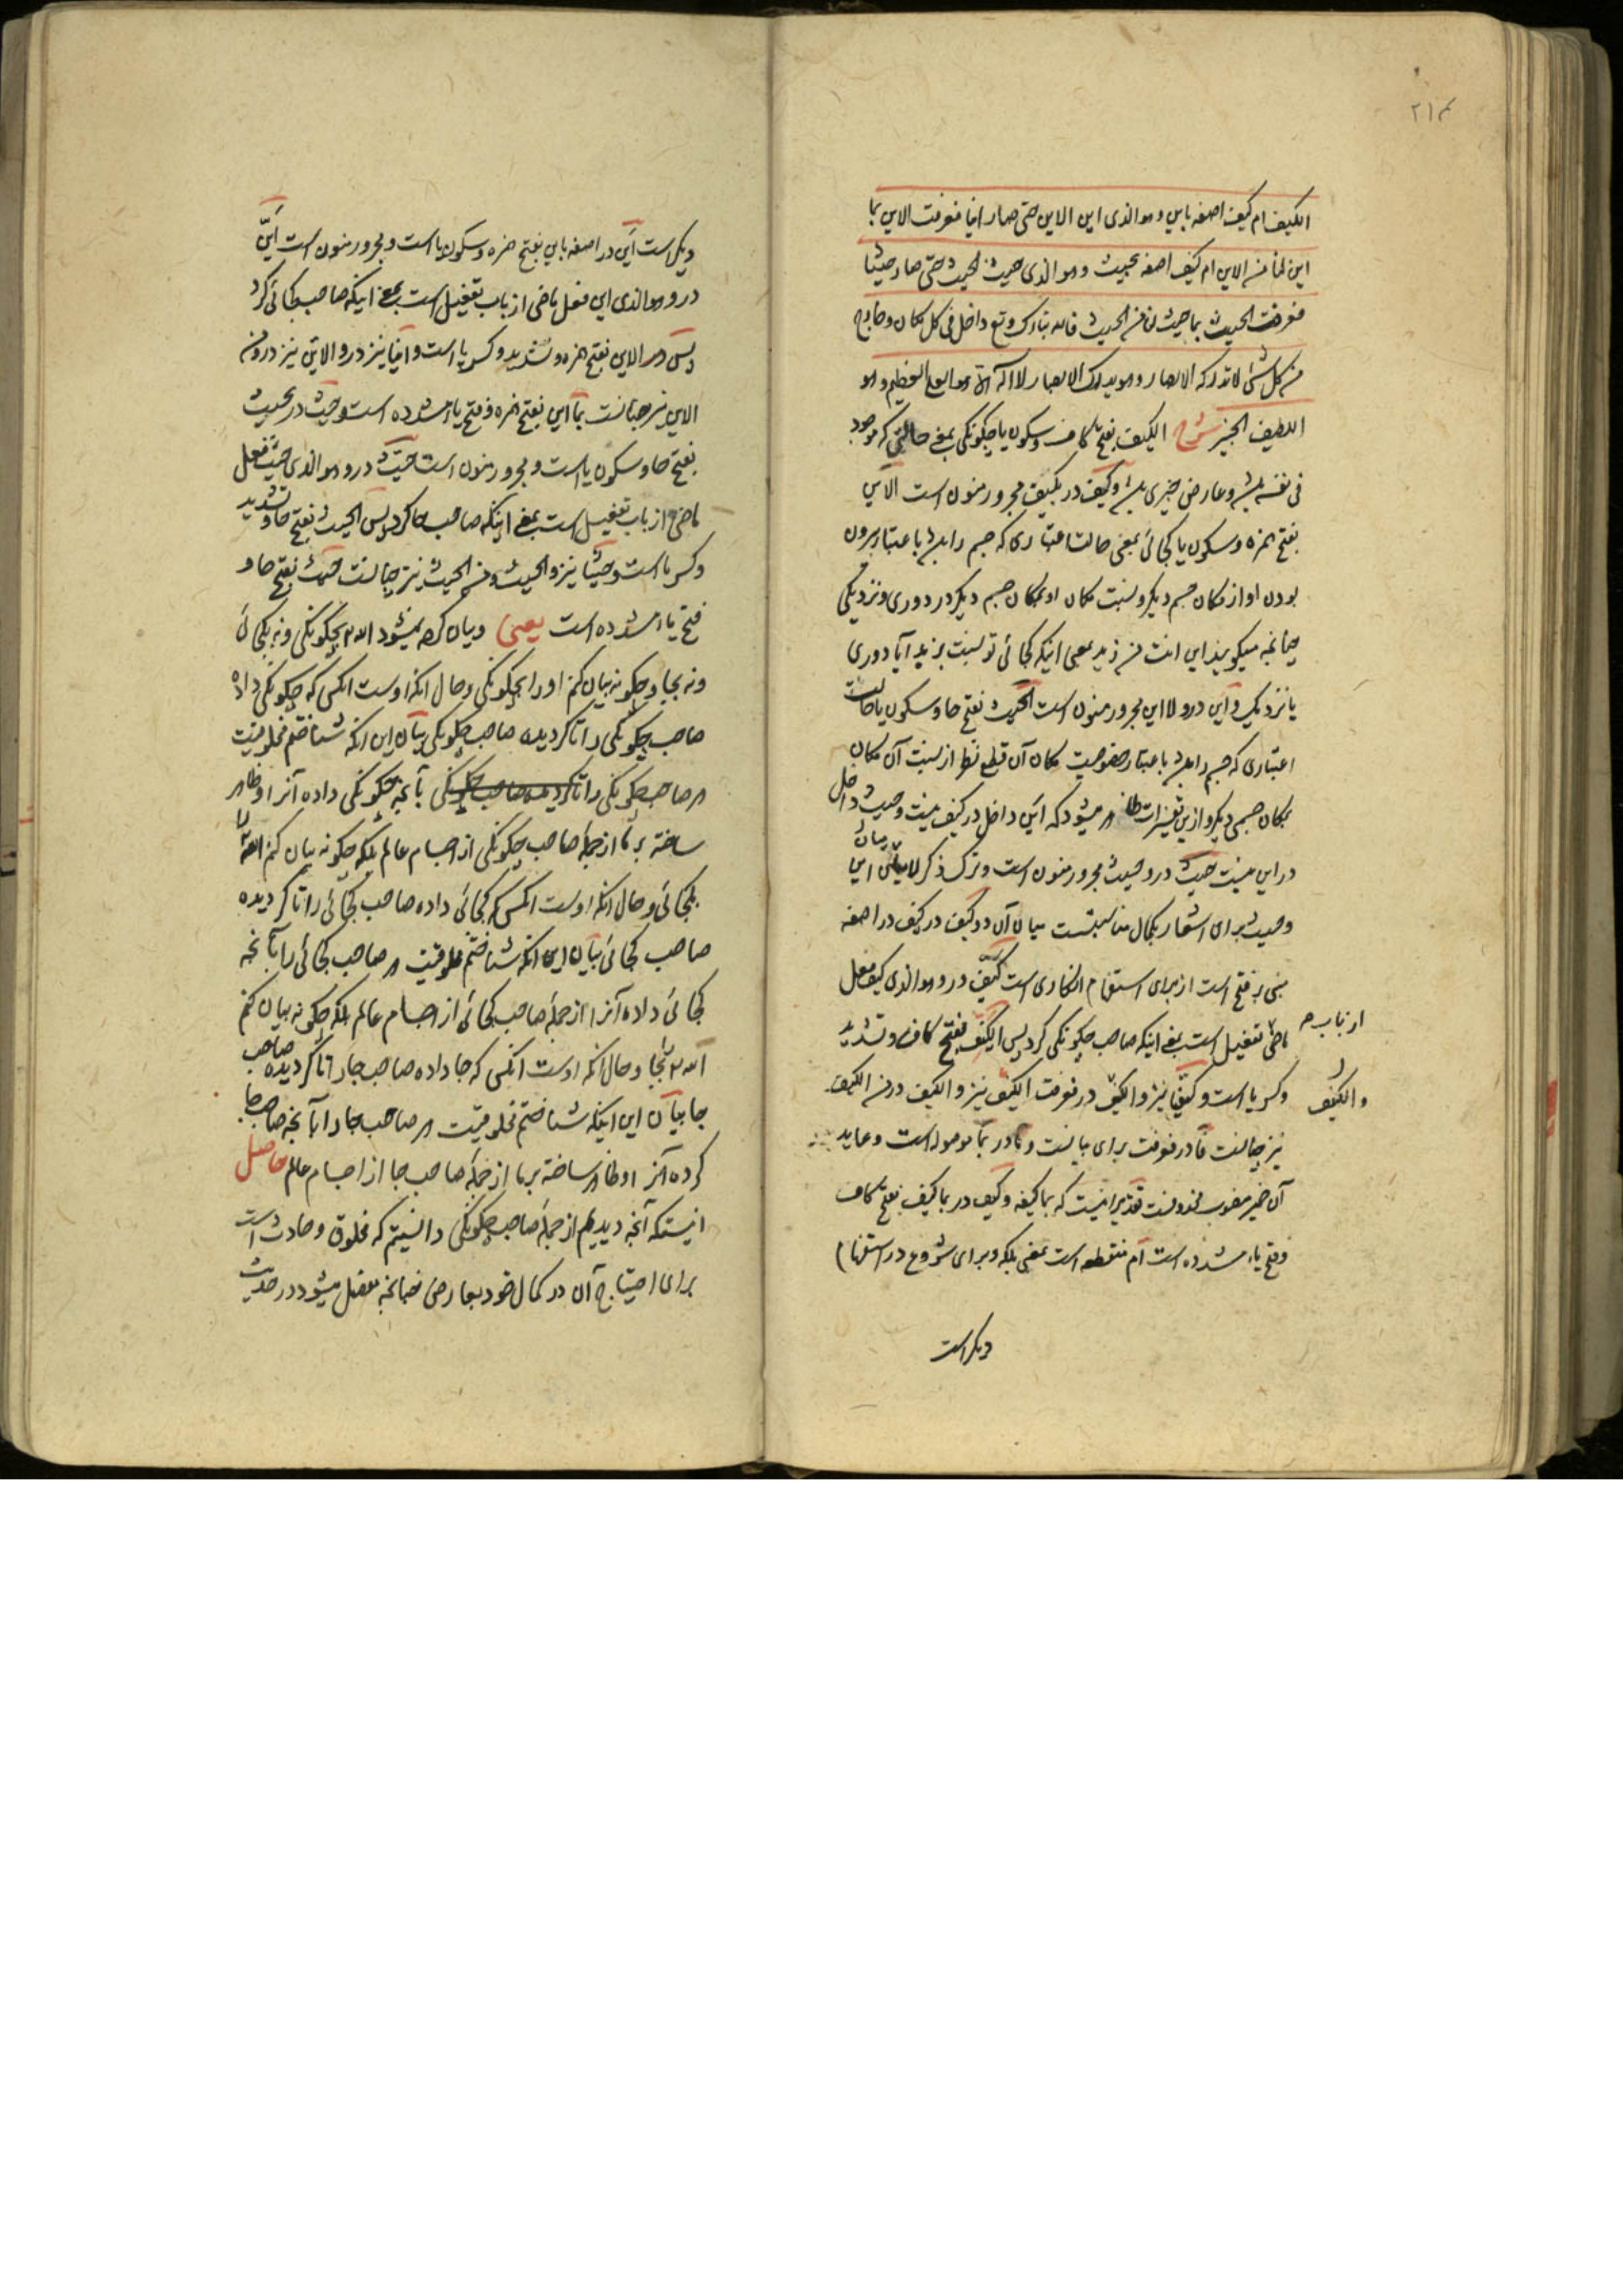 ۲۱۴
الکیف ام کیف اصفه باین وهو الذی این الاین حتی صار اینا فعرفت الاین بما
این لنا من الاین ام کیف اصفه بحیث وهو الذی حیث الحیث حتی صار حیثا
فعرفت الحیث بما حیث لنا من الحیث فالله تبارک وتع داخل فی کل مکان وخارج
من کل شئ لا تدرکه الابصار وهو یدرک الابصار لا اله الا هو العلی العظیم وهو
اللطیف الخبیر شرح الکیف بفتح کاف وسکون یا چگونگی بمعنی حالتی که موجود
فی نفسه باشد وعارض چیزی باشد وکیف در بکیف مجرور منون است الاین
بفتح همزه وسکون یا کجائی بمعنی حالت اعتباری که جسم را باشد باعتبار بیرون
بودن او از مکان جسم دیگر ونسبت مکان او بمکان جسم دیگر در دوری ونزدیکی
چنانچه میگویند این انت من زید بمعنی اینکه کجائی تو نسبت بزید آیا دوری
یا نزدیک واین در ولا این مجرور منون است الحیث بفتح حا وسکون یا حالت
اعتباری که جسم را باشد باعتبار خصوصیت مکان آن قطع نظر از نسبت آن مکان
بمکان جسمی دیگر وازین تفسیرات ظاهر میشود که این داخل در کیف نیست وحیث داخل
در این نیست حیث در وحیث مجرور منون است وترک ذکر لا میان این
وحیث برای اشعار بکمال مناسبتست میان آن دو کیف در کیف اصفه
مبنی بر فتح است از برای استفهام انکاری است کیف در وهو الذی کیف فعل
ماضی تفعیل است بمعنی اینکه صاحب چگونگی کرد پس الکیف بفتح کاف وتشدید
از باب
وکسر یا است وکیفا نیز والکیف در فعرفت الکیف نیز والکیف در من الکیف
والکیف
نیز چنانست فا در فعرفت برای بیانست وما در بما موصوله است وعاید
آن ضمیر منصوب محذوفست تقدیر اینست که بما کیفه وکیف در بما کیف بفتح کاف
وفتح یاء مشدده است ام منقطعه است بمعنی بلکه وبرای شروع در استفهام
دیگر است
دیگر است این در اصفه باین بفتح همزه وسکون یا است ومجرور منون است این
در وهو الذی این فعل ماضی از باب تفعیل است بمعنی اینکه صاحب کجائی کرد
پس در الاین بفتح همزه وتشدید وکسر یا است واینا نیز در والاین نیز در من
الاین نیز چنانست بما این بفتح همزه وفتح یا مشدده است وحیث در بحیث
بفتح حا وسکون یا است ومجرور منون است حیث در وهو الذی حیث فعل
ماضی از باب تفعیل است بمعنی اینکه صاحب جا کرد پس الحیث بفتح حا وتشدید
وکسر یا است وحیثا نیز والحیث ومن الحیث نیز چنانست حیث بفتح حا و
فتح یاء مشدده است یعنی وبیان کرده نمیشود الله تع بچگونگی ونه بکجائی
ونه بجا وچگونه بیان کنم او را بچگونگی وحال آنکه اوست آنکس که چگونگی داده
صاحب چگونگی را تا گردیده صاحب چگونگی بیان این آنکه شناختم مخلوقیت
هر صاحب چگونگی را بآنچه چگونگی داده آنرا او ظاهر
ساخته بر ما از جمله صاحب چگونگی از اجسام عالم بلکه چگونه بیان کنم الله تع را
بکجائی وحال آنکه اوست آنکس که کجائی داده صاحب کجائی را تا گردیده
صاحب کجائی بیان این آنکه شناختم مخلوقیت هر صاحب کجائی را بآنچه
کجائی داده آنرا از جمله صاحب کجائی از اجسام عالم بلکه چگونه بیان کنم
الله تع را بجا وحال آنکه اوست آنکس که جا داده صاحب جا را تا گردیده صاحب
جا بیان این اینکه شناختم مخلوقیت هر صاحب جا را بآنچه صاحب جا
کرده آنرا وظاهر ساخته بر ما از جمله صاحب جا از اجسام عالم حاصل
اینستکه آنچه دیدیم از جمله صاحب چگونگی دانستیم که مخلوق وحادث است
برای احتیاج آن در کمال خود بعارض چنانچه مفصل میشود در حدیث